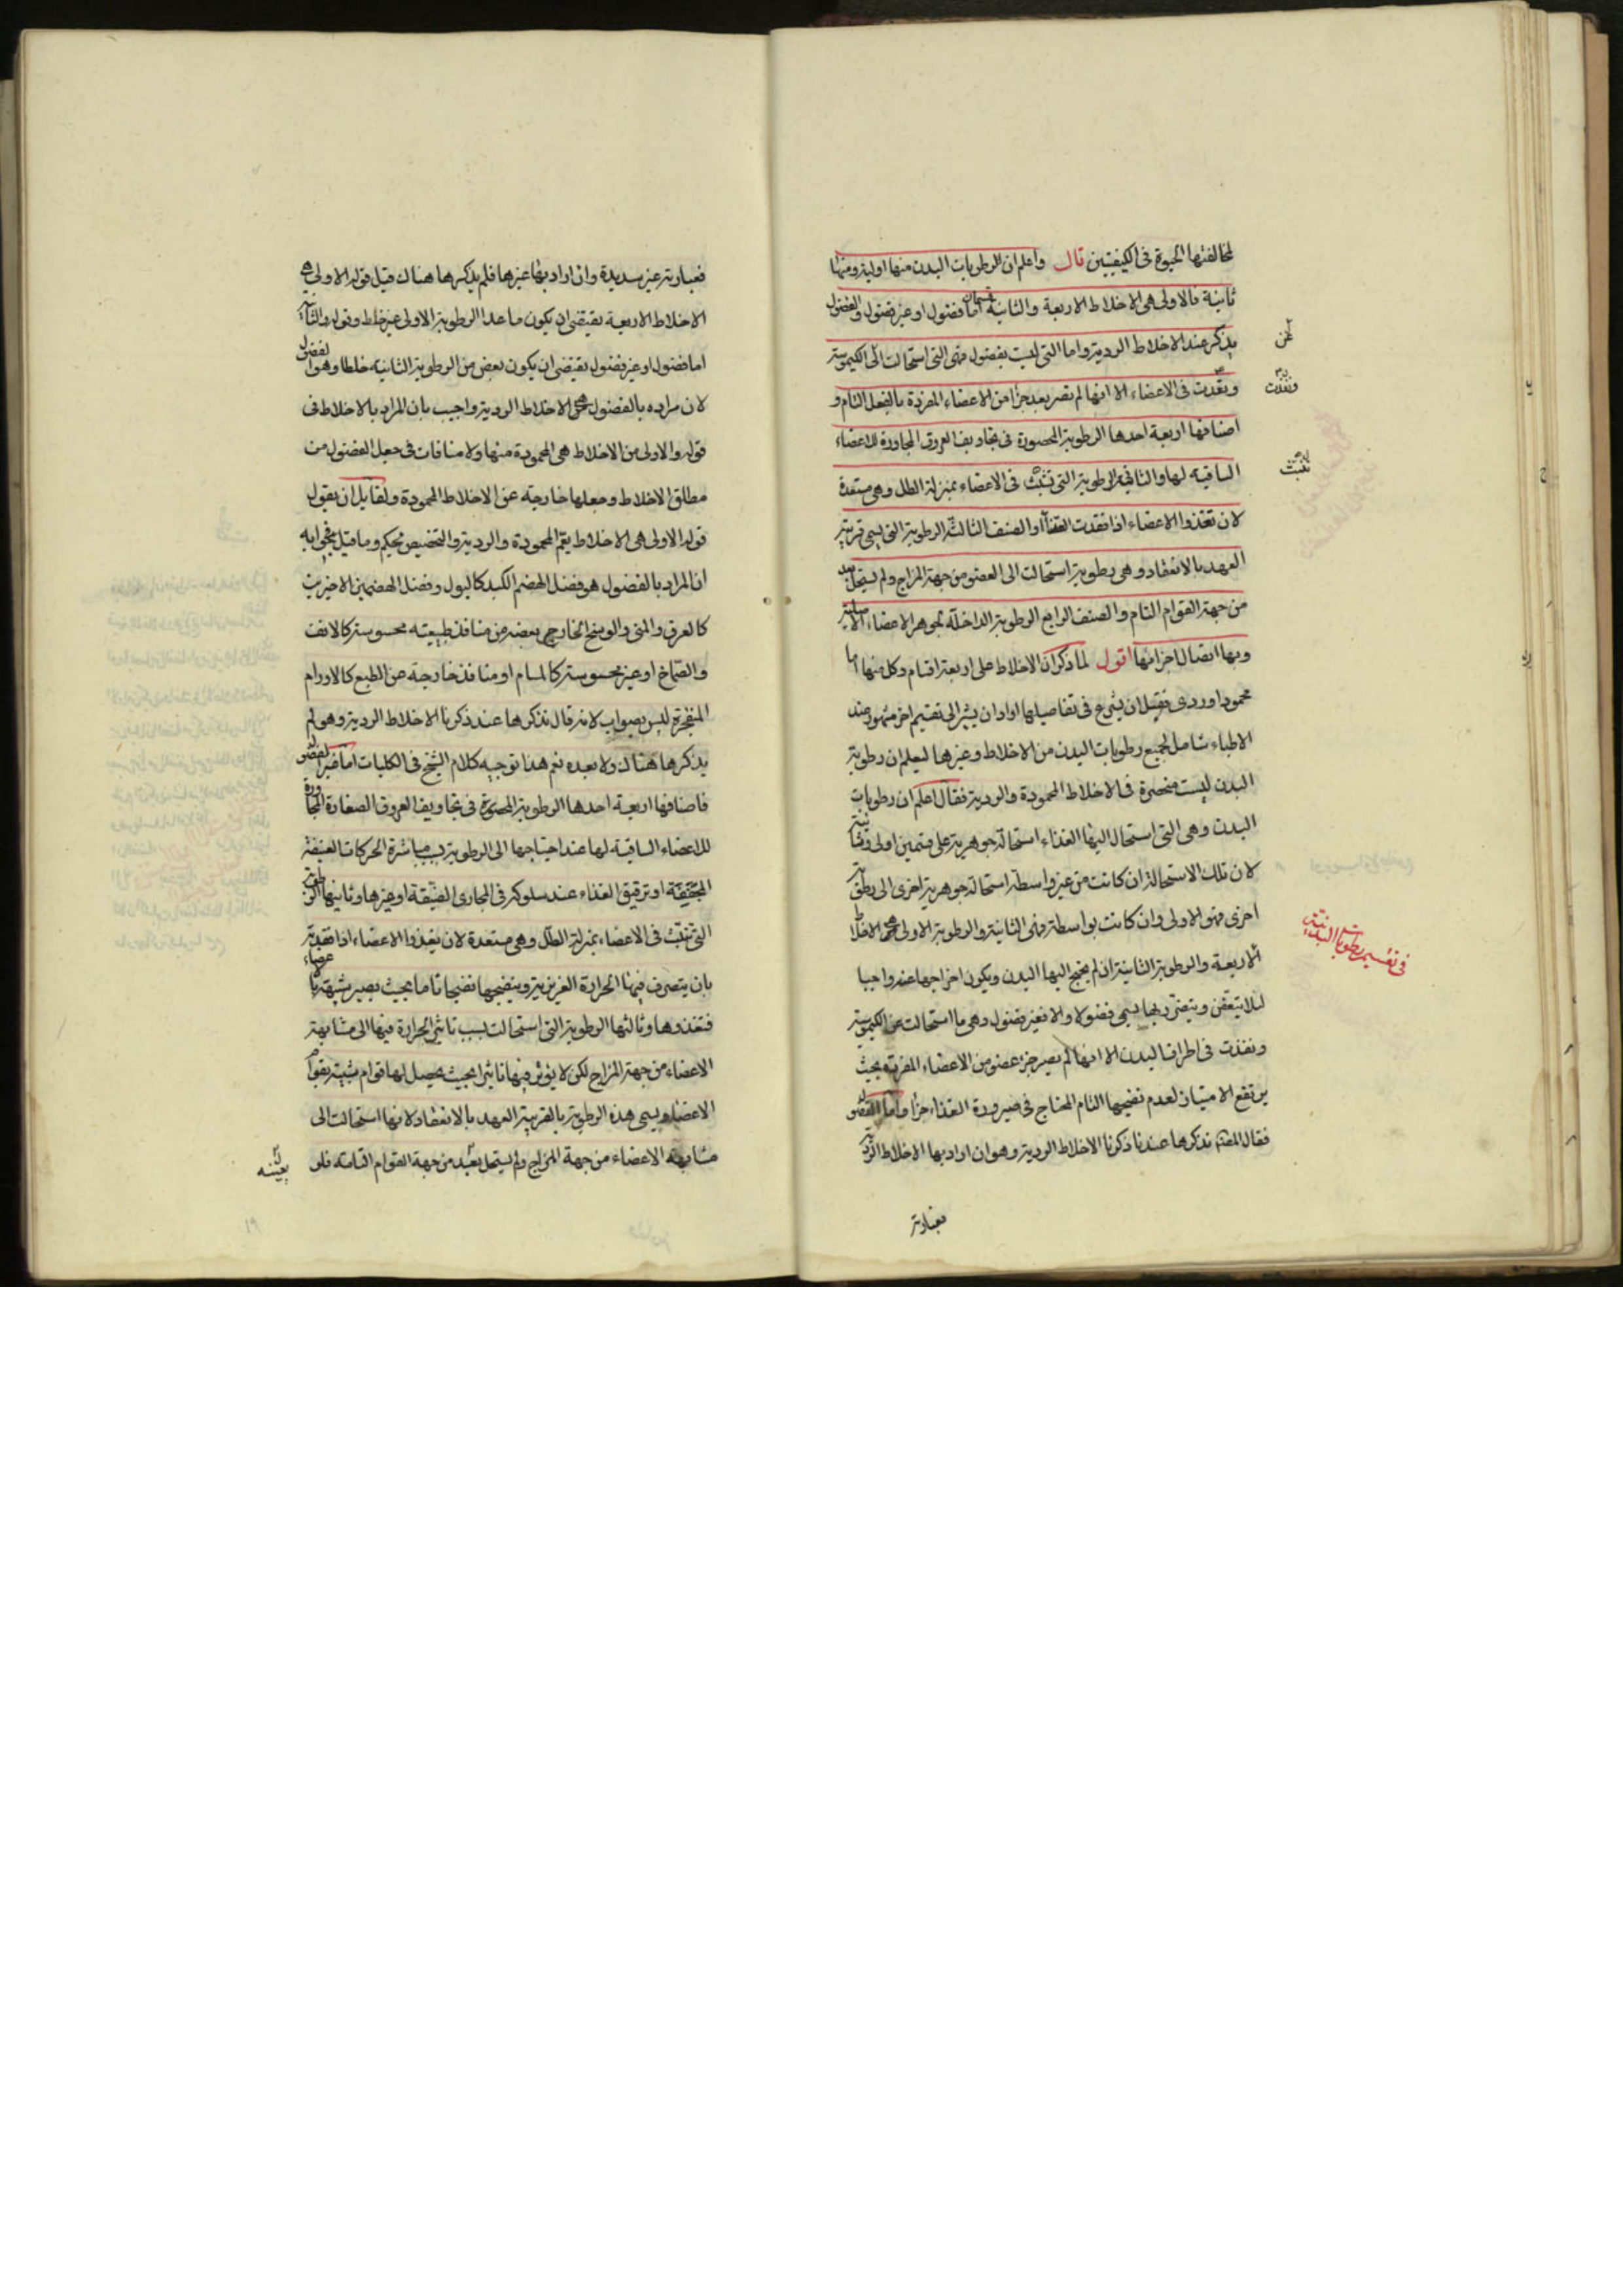 لمخالفتها الحيوة فى الكيفيتين قال واعلم ان للرطوبات البدن منها اولية ومنها
ثانية فالاولى هى الاخلاط الاربعة والثانية قسمان اما فضول او غير فضول والفضول
يذكر عند الاخلاط الردية واما التى ليست بفضول فهى التى استحالت الى الكيموسية
ونفذت فى الاعضاء الا انها لم تصر بعد جزأ من الاعضاء المفردة بالفعل التام و
اصنافها اربعة احدها الرطوبة المحصورة فى تجاويف العروق المجاورة للاعضاء
الساقية لها والثانية الرطوبة التى تنبث فى الاعضاء بمنزلة الطل وهى مستعدة
لان تغذوا الاعضاء اذا فقدت الغذاء والصنف الثالث الرطوبة التى يسمى قريبة
العهد بالانعقاد وهى رطوبة استحالت الى العضو من جهة المزاج ولم يستحل بعد
من جهة القوام التام والصنف الرابع الرطوبة الداخلة لجوهر الاعضاء الاصلية
وبها اتصال اجزائها اقول لما ذكر ان الاخلاط على اربعة اقسام وكل منها اما
محمود او ردى فقبل ان يشرع فى تفاصيلها اراد ان يشير الى تقسيم اخر مشهور عند
الاطباء شامل لجميع رطوبات البدن من الاخلاط وغيرها ليعلم ان رطوبة
البدن ليست منحصرة فى الاخلاط المحمودة والردية فقال اعلم ان رطوبات
البدن وهى التى استحال اليها الغذاء استحالة جوهرية على قسمين اولى وثانية
لان تلك الاستحالة ان كانت من غير واسطة استحالة جوهرية اخرى الى رطوبة
اخرى فهو الاولى وان كانت بواسطة فهى الثانية والرطوبة الاولى هى الاخلاط
الاربعة والرطوبة الثانية ان لم يحتج اليها البدن ويكون اخراجها عنه واجبا
لئلا يتعفن ويتضرر بها يسمى فضولا والا فغير فضول وهى ما استحالت عن الكيموسية
ونفذت فى اطراف البدن الا انها لم يصر جزء عضو من الاعضاء المفردة بحيث
يرتفع الامتياز لعدم نضجها التام المحتاج فى صيرورة الغذاء جزأ واما الفضول
فقال المصنف نذكرها عند ما ذكرنا الاخلاط الردية وهو ان اراد بها الاخلاط الردية
فعبارته
فى تقسيم رطوبات البدنية
ونفذت
تنبث
فعبارته غير سديدة وان اراد بها غيرها فلم يذكرها هناك قيل قوله الاولى هى
الاخلاط الاربعة يقتضى ان يكون ما عدا الرطوبة الاولى غير خلط وقوله والثانية
اما فضول او غير فضول يقتضى ان يكون بعض من الرطوبة الثانية خلطا وهو الفضول
لان مراده بالفضول هى الاخلاط الردية واجيب بان المراد بالاخلاط فى
قوله والاولى من الاخلاط هى المحمودة منها ولا منافات فى جعل الفضول من
مطلق الاخلاط وجعلها خارجة عن الاخلاط المحمودة ولقايل ان يقول
قوله الاولى هى الاخلاط يعم المحمودة والردية والتخصيص تحكم وما قيل فى جوابه
ان المراد بالفضول هو فضل الهضم الكبد كالبول وفضل الهضمين الاخيرين
كالعرق والمنى والوسخ الخارج بعضه من منافذ طبيعته محسوسة كالانف
والصماخ او غير محسوسة كالمسام او منافذ خارجة عن الطبع كالاورام
المنفجرة ليس بصواب لانه قال نذكرها عند ذكرنا الاخلاط الردية وهو لم
يذكرها هناك ولا بعده نعم هذا توجيه كلام الشيخ فى الكليات اما غير الفضول
فاصنافها اربعة احدها الرطوبة المحصورة فى تجاويف العروق الصغار المجاورة
للاعضاء الساقية لها عند احتياجها الى الرطوبة بسبب مباشرة الحركات العنيفة
المجففة او ترقيق الغذاء عند سلوكه فى المجارى الضيقة او غيرها وثانيها الرطوبة
التى تنبث فى الاعضاء بمنزلة الطل وهى مستعدة لان يغذوا الاعضاء اذا فقدته
بان يتصرف فيها الحرارة الغريزية وينضجها نضجا تاما بحيث يصير شبيهة بالاعضاء
فتغذوها وثالثها الرطوبة التى استحالت بسبب تاثير الحرارة فيها الى مشابهة
الاعضاء من جهة المزاج لكن لا يؤثر فيها تاثيرا بحيث يحصل لها قوام شبيه بقوام
الاعضاء ويسمى هذه الرطوبة بالقريبة العهد بالانعقاد لانها استحالت الى
مشابهة الاعضاء من جهة المزاج ولم يستحل بعد من جهة القوام التامة فلو
١٩